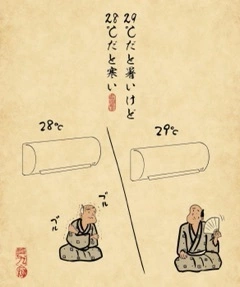 29℃だと暑いけど
28℃だと寒い
28℃
29℃
ブル
ブル